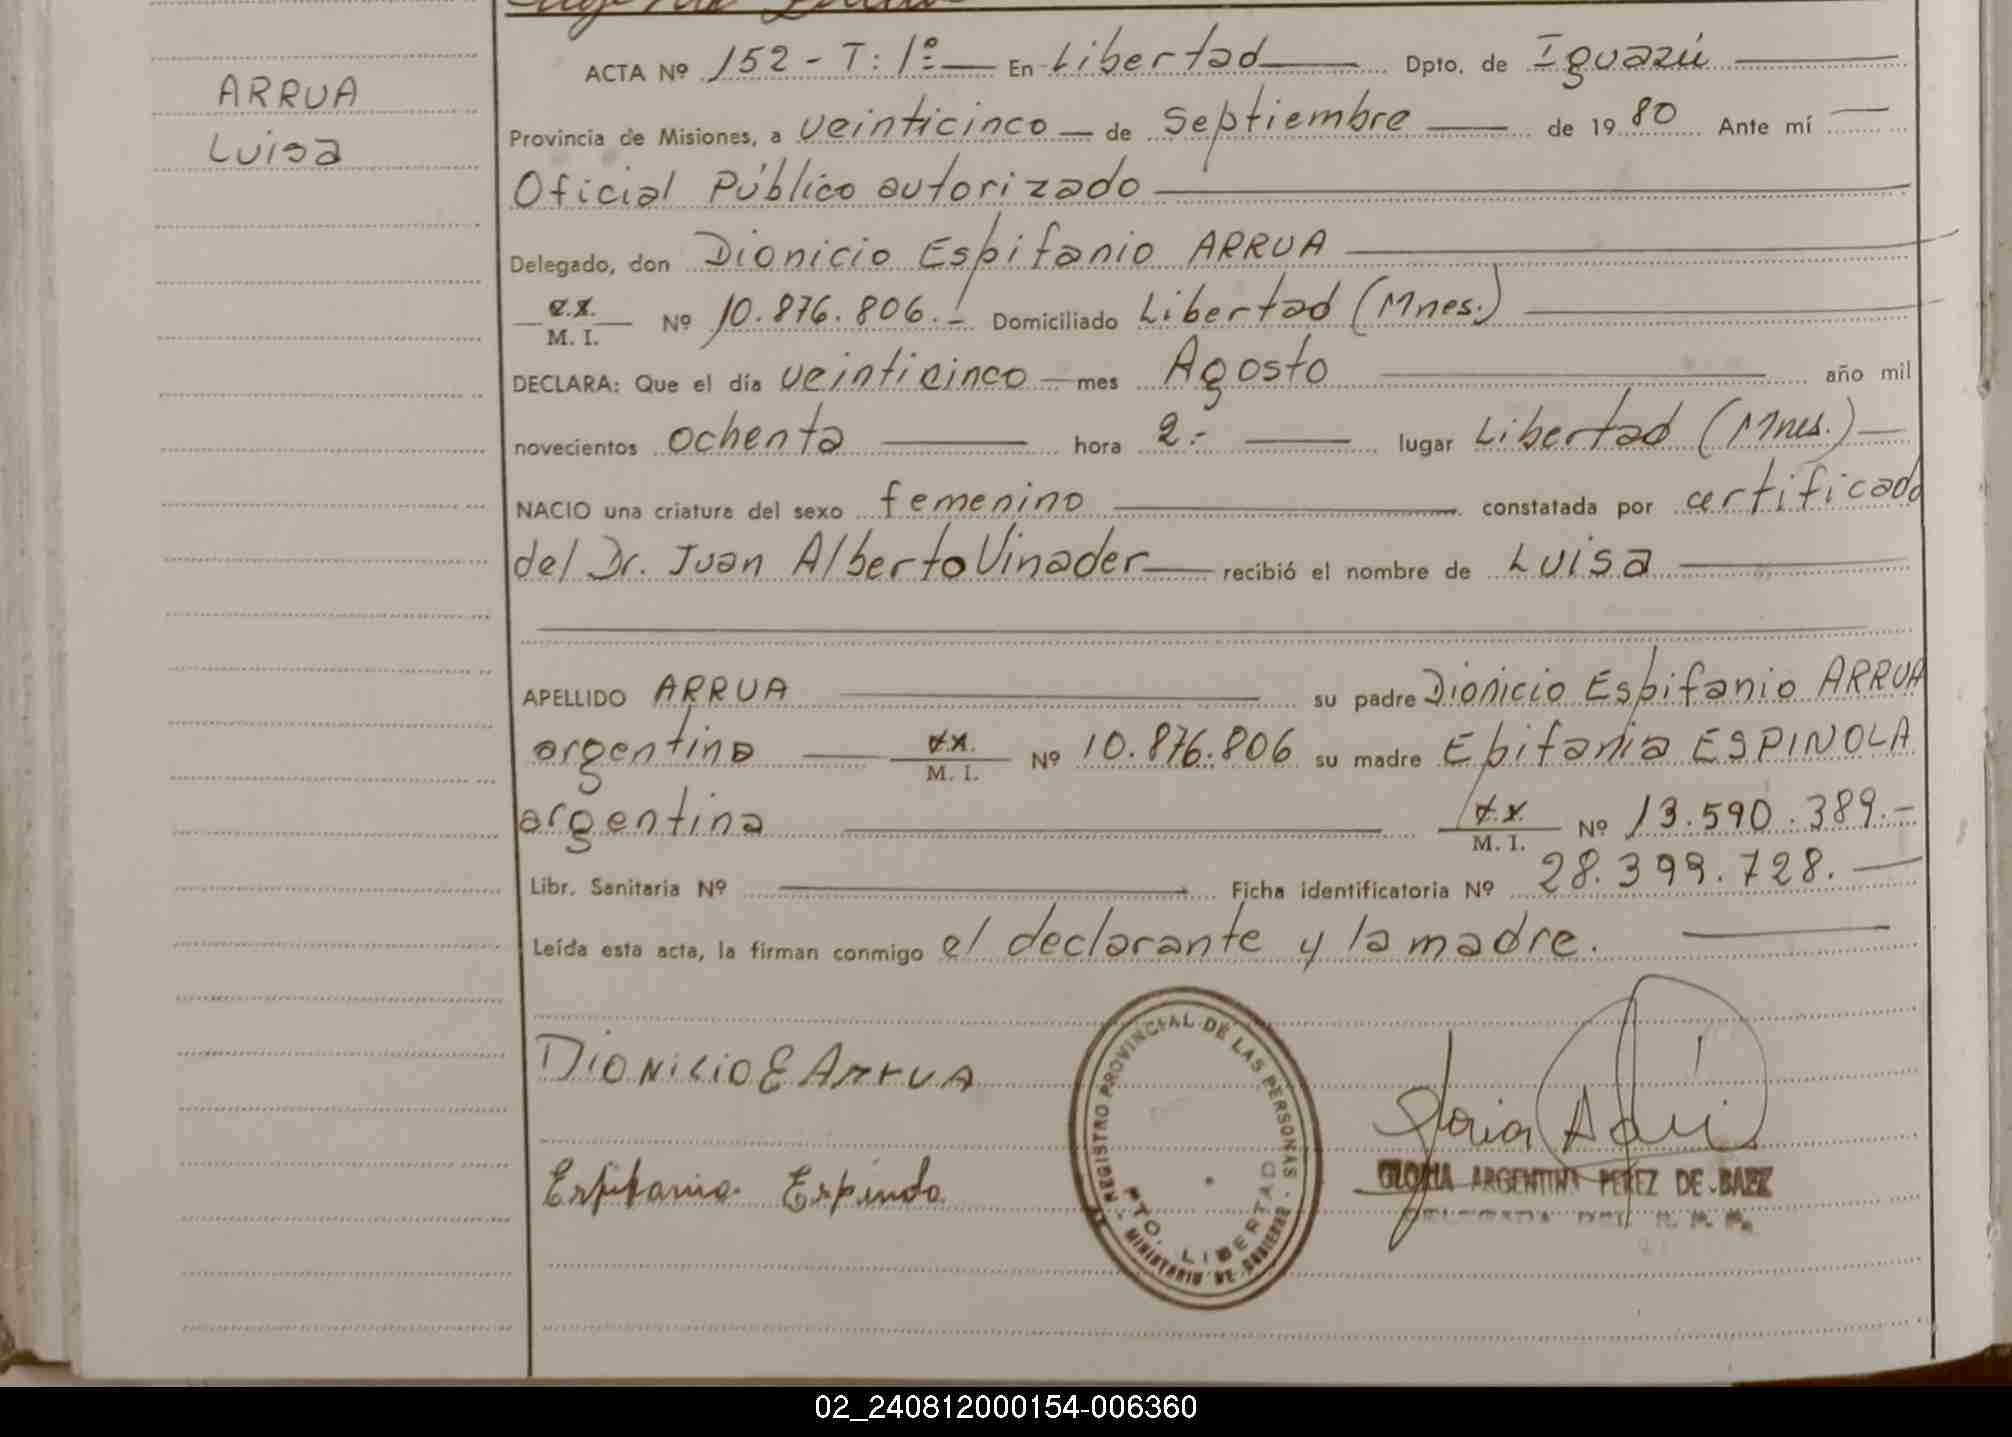 ARRUA
Luisa
ACTA Nº 152 - T: 1º En Libertad Dpto. de Iguazú
Provincia de Misiones, a veinticinco de Septiembre de 1980 Ante mí
Oficial Público autorizado
Delegado, don Dionicio Espifanio ARRUA
M. I. Nº 10.876.806.- Domiciliado Libertad (Mnes.)
DECLARA: Que el día veinticinco mes Agosto año mil
novecientos ochenta hora 2.- lugar Libertad (Mnes.)
NACIO una criatura del sexo femenino constatada por certificado
del Dr. Juan Alberto Vinader recibió el nombre de Luisa
APELLIDO ARRUA su padre Dionicio Espifanio ARRUA
argentino M. I. Nº 10.876.806 su madre Epifania ESPINOLA
argentina M. I. Nº 13.590.389.-
Libr. Sanitaria Nº Ficha identificatoria Nº 28.399.728.
Leída esta acta, la firman conmigo el declarante y la madre.
Dionicio E Arrua
REGISTRO PROVINCIAL DE LAS PERSONAS - MINISTERIO DE GOBIERNO
PTO. LIBERTAD
GLORIA ARGENTINA PEREZ DE BAEZ
DELEGADA DEL R. P. P.
02_240812000154-006360